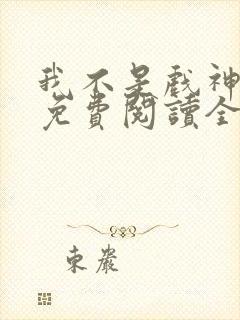 我不是戲神
免費閱讀全
東嚴